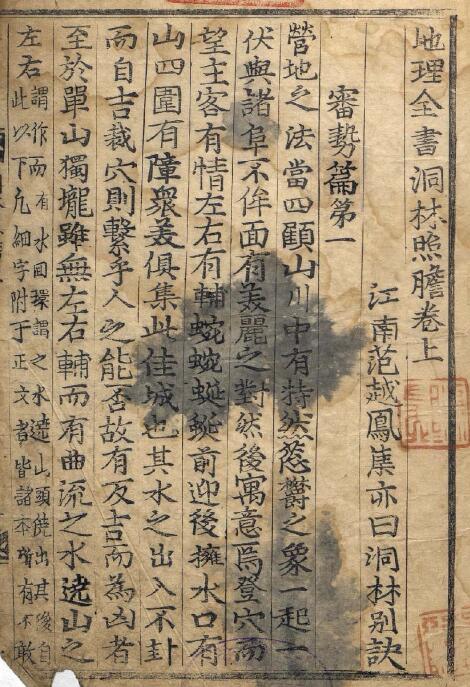 地理全書洞林照膽卷上
江南范越鳳集亦曰洞林別訣
審勢篇第一
營地之法當四顧山川中有持然蔥欝之象一起一
伏與諸阜不侔面有美麗之對然後寓意焉登穴而
望主客有情左右有輔蜿蜿蜒蜒前迎後擁水口有
山四圍有障衆美俱集此佳城也其水之出入不卦
而自吉裁穴則繫乎人之能否故有反吉而為凶者
至於單山獨壠雖無左右輔而有曲流之水遶山之
左右謂作而有水回環謂之水遶山頭饒出其後自
此以下凡細字附于正文者皆諸本増有不敢